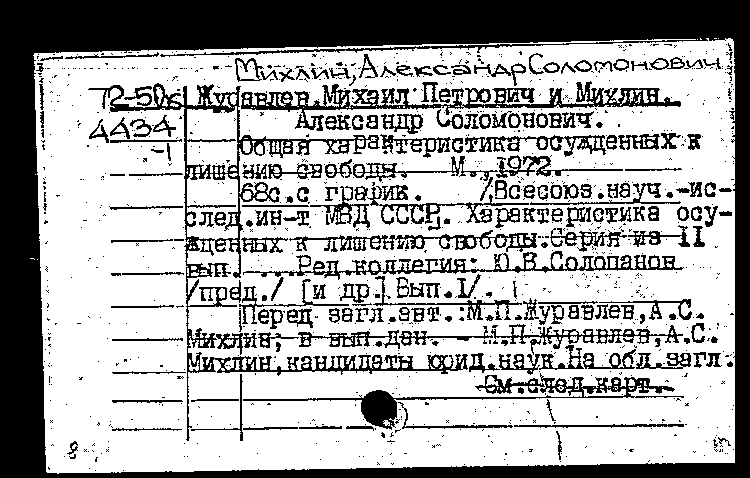 Михлин, Александр Соломонович
72-50к Журавлев, Михаил Петрович и Михлин,
4434 Александр Соломонович.
-1 Общая характеристика осужденных к
лишению свободы. М., 1972.
68с. с график. /Всесоюз.науч.-ис-
след.ин-т МВД СССР. Характеристика осу-
жденных к лишению свободы. Серия из II
вып. ... Ред.коллегия: Ю.В.Солопанов
/пред./ [и др.] Вып.1/.
Перед загл.авт.: М.П.Журавлев, А.С.
Михлин; в вып.дан. - М.П.Журавлев, А.С.
Михлин, кандидаты юрид.наук. На обл.загл:
См.след.карт.
8